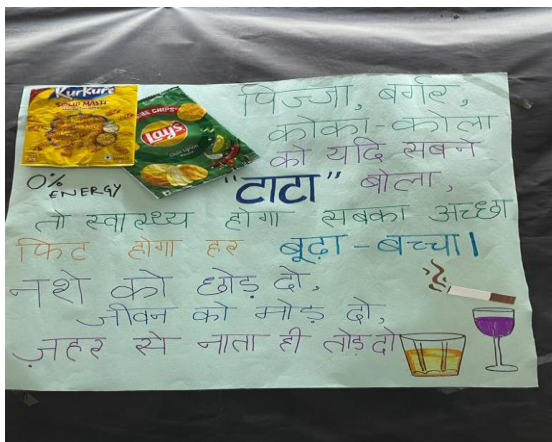 Kurkure
SOLID MASTI
Lay's
पिज्जा, बर्गर,
कोका-कोला
को यदि सबने
"टाटा" बोला,
0% ENERGY
तो स्वास्थ्य होगा सबका अच्छा
फिट होगा हर बूढ़ा-बच्चा।
नशे को छोड़ दो,
जीवन को मोड़ दो,
ज़हर से नाता ही तोड़ दो